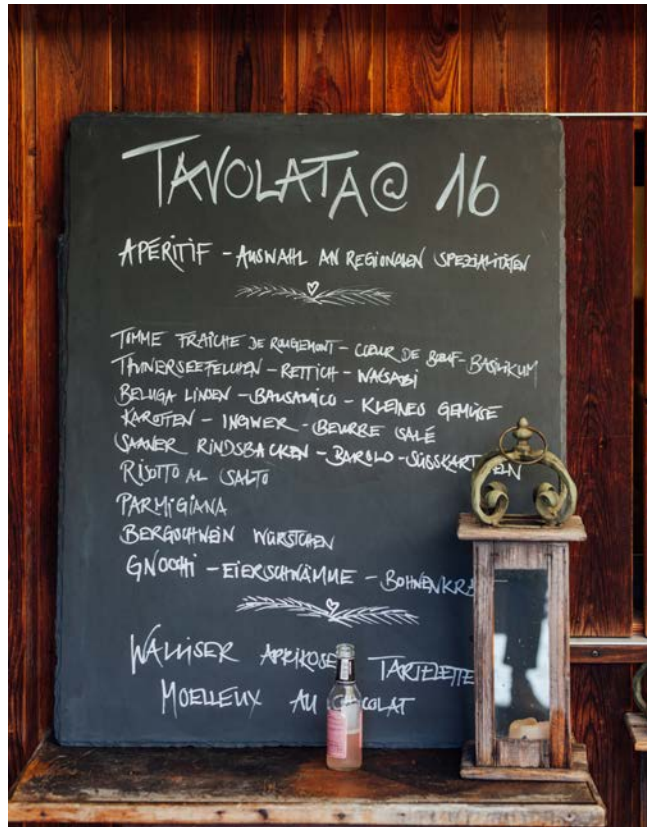 TAVOLATA@ 16
APERITIF - AUSWAHL AN REGIONALEN SPEZIALITÄTEN
TOMME FRAÎCHE DE ROUGEMONT - CŒUR DE BŒUF - BASILIKUM
THUNERSEEFELCHEN - RETTICH - WASABI
BELUGA LINSEN - BALSAMICO - KLEINES GEMÜSE
KAROTTEN - INGWER - BEURRE SALÉ
SAANER RINDSBACKEN - BAROLO - SÜSSKART EN
RISOTTO AL SALTO
PARMIGIANA
BERGSCHWEIN WÜRSTCHEN
GNOCCHI - EIERSCHWÄMME - BOHNENKR
WALLISER APRIKOSE TARTELETTE
MOELLEUX AU C COLAT